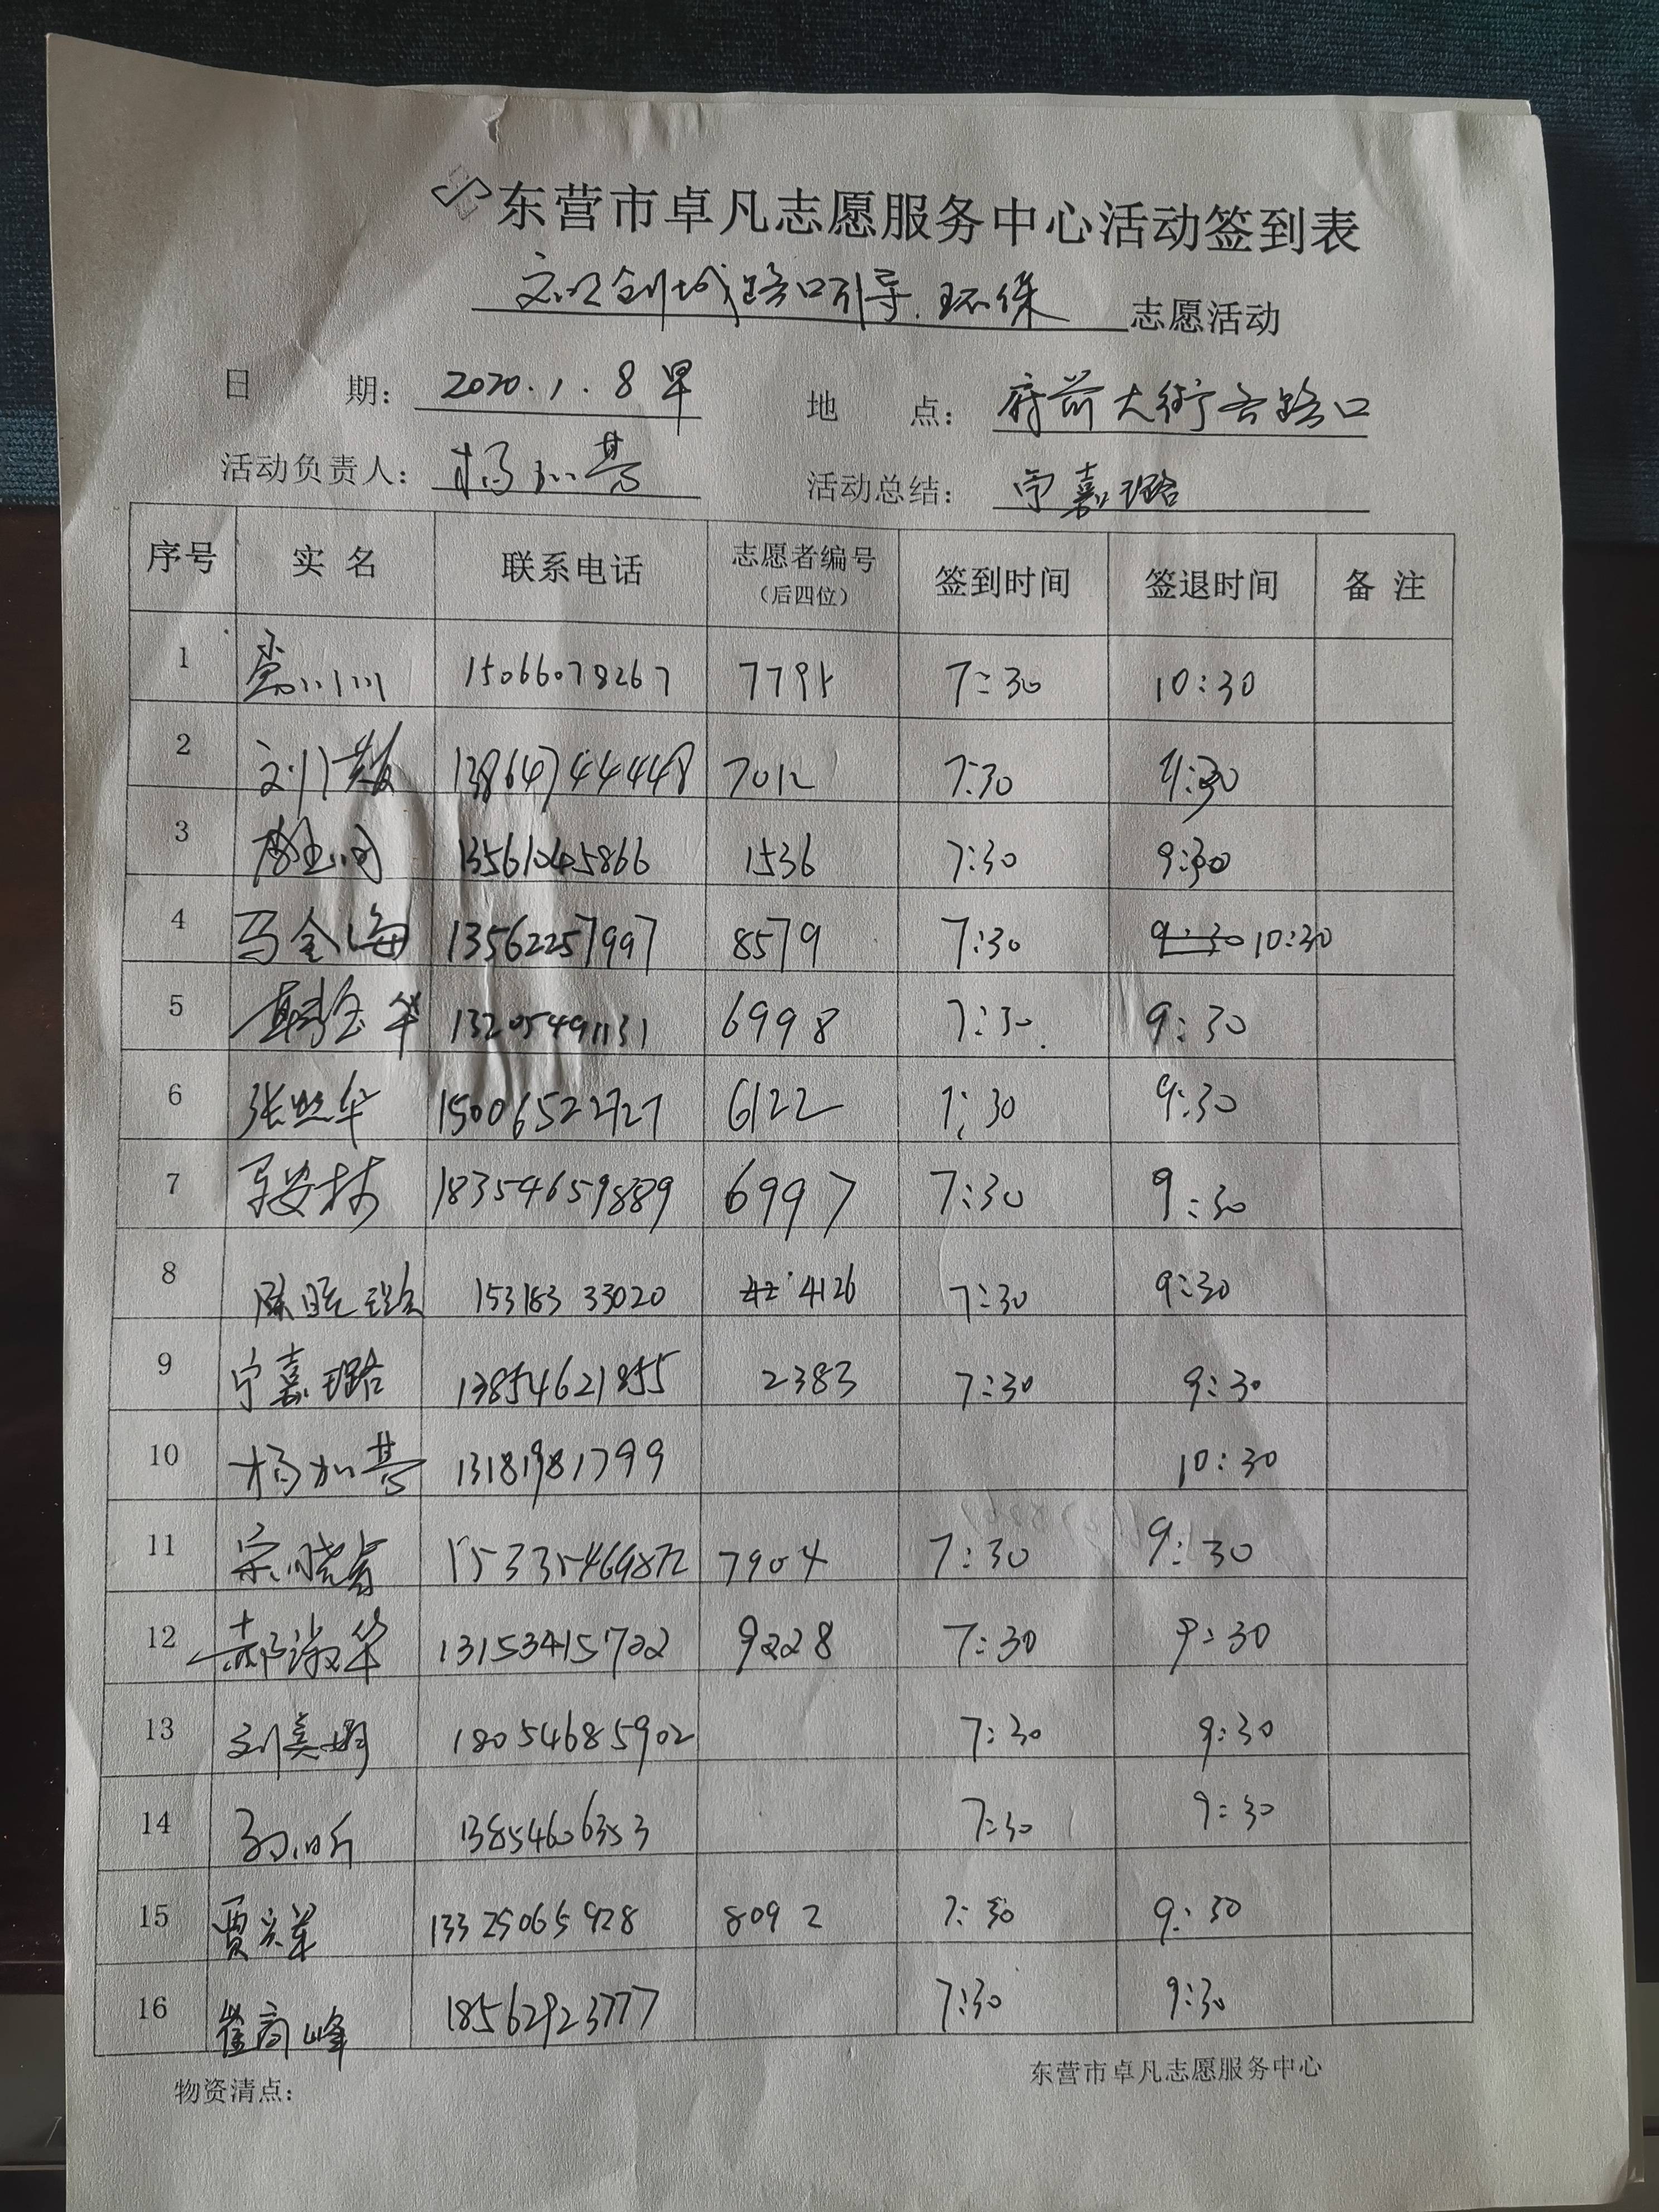 东营市卓凡志愿服务中心活动签到表
文明创城路口引导.环保 志愿活动
日 期: 2020.1.8早 地 点: 府前大街各路口
活动负责人: 杨加营 活动总结: 宁嘉璐
序号 实名 联系电话 志愿者编号(后四位) 签到时间 签退时间 备注
1 15066078267 7795 7:30 10:30
2 13864744448 7012 7:30
3 13561045866 1536 7:30 9:30
4 马金海 13562257997 8579 7:30 9:30 10:30
5 韩金华 13205491131 6998 7:30 9:30
6 张丝华 15006522727 6122 7:30 9:30
7 18354659889 6997 7:30 9:30
8 陈晓璐 15318333020 4126 7:30 9:30
9 宁嘉璐 13854621855 2383 7:30 9:30
10 杨加营 13181981799 10:30
11 宋晓睿 7904 7:30 9:30
12 郝淑华 13153415722 9228 7:30 9:30
13 刘美娟 18054685902 7:30 9:30
14 孙昕 13854606353 7:30 9:30
15 13325065928 8092 7:30 9:30
16 崔高峰 18562923777 7:30 9:30
物资清点: 东营市卓凡志愿服务中心